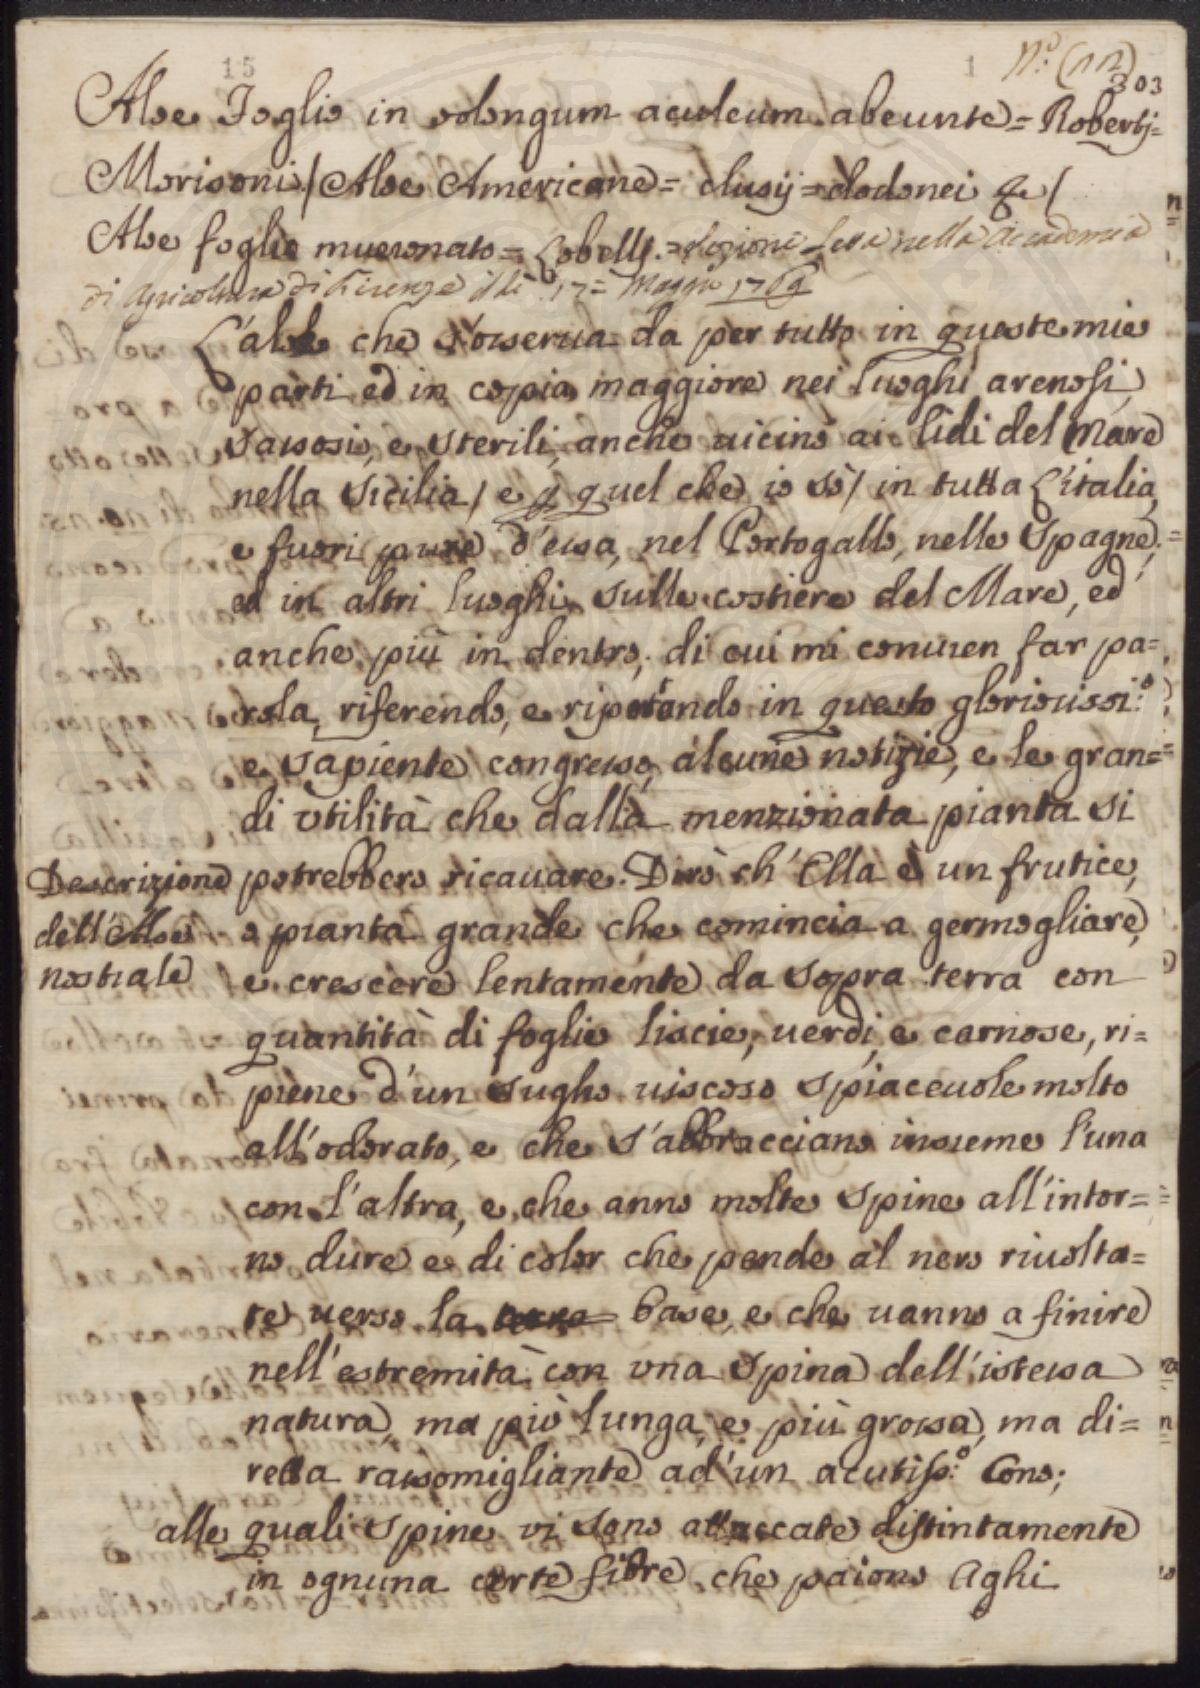 15 1 N.º (11)
303
Aloe Foglio in oblongum aculeum abeunte = Robertj=
Morisoni / Aloe Americane = clusij = dodonei &c /
Aloe foglio mucronato = Lobelli. = Lezione Letta nella Accademia
di Agricoltura di Firenze il dì 17 = Maggio 1769
L'aloe che s'osserua da per tutto in queste mie
parti ed in copia maggiore nei luoghi arenosi,
sassosi, e sterili, anche uicino ai lidi del Mare
nella Sicilia / e p quel che io sò / in tutta L'italia,
e fuori pure d'essa, nel Portogallo, nelle Spagne,
ed in altri luoghi sulle costiere del Mare, ed
anche più in dentro, di cui mi conuien far pa=
rola, riferendo, e riportando in questo gloriosissi:º
e sapiente congresso, alcune notizie, e le gran=
di vtilità che dalla menzionata pianta si
Descrizione potrebbero ricauare. Dirò ch'Ella è un frutice,
dell'Aloe o pianta grande che comincia a germogliare,
nostrale e crescere lentamente da sopra terra con
quantità di foglie liscie, uerdi, e carnose, ri=
piene d'un sugho uiscoso spiaceuole molto
all'odorato, e che s'abbracciano insieme l'una
con l'altra, e che anno molte spine all'intor=
no dure e di color che pende al nero riuolta=
te uerso la base, e che uanno a finire
nell'estremità con vna spina dell'istessa
natura, ma più lunga, e più grossa, ma di=
retta rassomigliante ad'un acutiss:º Cono;
alle quali spine vi sono attaccate distintamente
in ognuna certe fibre che paiono Aghi